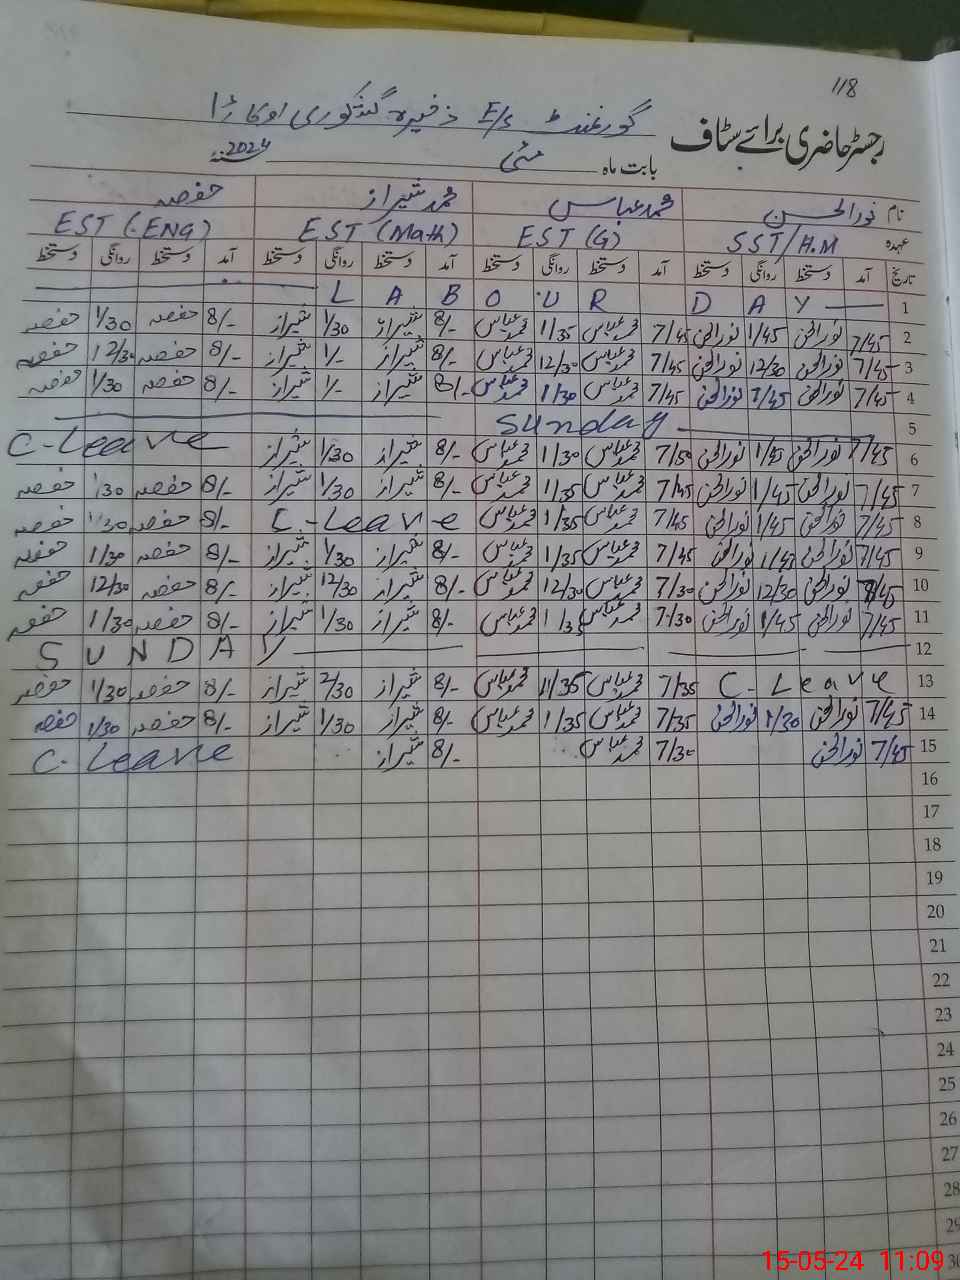 118
گورنمنٹ E/S ذخیرہ گنڈکوری اوکاڑا
رجسٹر حاضری برائے سٹاف
بابت ماہ مئی سنہ 2024
نام نورالحسن محمد عباس محمد شیراز حفصہ
عہدہ SST/H.M EST (G) EST (Math) EST (ENG)
تاریخ آمد دستخط روانگی دستخط آمد دستخط روانگی دستخط آمد دستخط روانگی دستخط آمد دستخط روانگی دستخط
1 L A B O U R D A Y
2 7/45 نورالحسن 1/45 نورالحسن 7/45 محمد عباس 1/35 محمد عباس 8/- شیراز 1/30 شیراز 8/- حفصہ 1/30 حفصہ
3 7/45 نورالحسن 12/30 نورالحسن 7/45 محمد عباس 12/30 محمد عباس 8/- شیراز 1/- شیراز 8/- حفصہ 12/30 حفصہ
4 7/45 نورالحسن 1/45 نورالحسن 7/45 محمد عباس 1/30 محمد عباس 8/- شیراز 1/- شیراز 8/- حفصہ 1/30 حفصہ
5 Sunday
6 7/45 نورالحسن 1/45 نورالحسن 7/50 محمد عباس 1/30 محمد عباس 8/- شیراز 1/30 شیراز C-Leave
7 7/45 نورالحسن 1/45 نورالحسن 7/45 محمد عباس 1/35 محمد عباس 8/- شیراز 1/30 شیراز 8/- حفصہ 1/30 حفصہ
8 7/45 نورالحسن 1/45 نورالحسن 7/45 محمد عباس 1/35 محمد عباس C-Leave 8/- حفصہ 1/30 حفصہ
9 7/45 نورالحسن 1/45 نورالحسن 7/45 محمد عباس 1/35 محمد عباس 8/- شیراز 1/30 شیراز 8/- حفصہ 1/30 حفصہ
10 7/45 نورالحسن 12/30 نورالحسن 7/30 محمد عباس 12/30 محمد عباس 8/- شیراز 12/30 شیراز 8/- حفصہ 12/30 حفصہ
11 7/45 نورالحسن 1/45 نورالحسن 7/30 محمد عباس 1/35 محمد عباس 8/- شیراز 1/30 شیراز 8/- حفصہ 1/30 حفصہ
12 S U N D A Y
13 C-Leave 7/35 محمد عباس 1/35 محمد عباس 8/- شیراز 2/30 شیراز 8/- حفصہ 1/30 حفصہ
14 7/45 نورالحسن 1/30 نورالحسن 7/35 محمد عباس 1/35 محمد عباس 8/- شیراز 1/30 شیراز 8/- حفصہ 1/30 حفصہ
15 7/45 نورالحسن 7/30 محمد عباس 8/- شیراز C-Leave
16
17
18
19
20
21
22
23
24
25
26
27
28
29
30
15-05-24 11:09